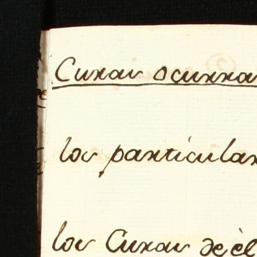 Curas ocurra
los particular
los Curas de èl